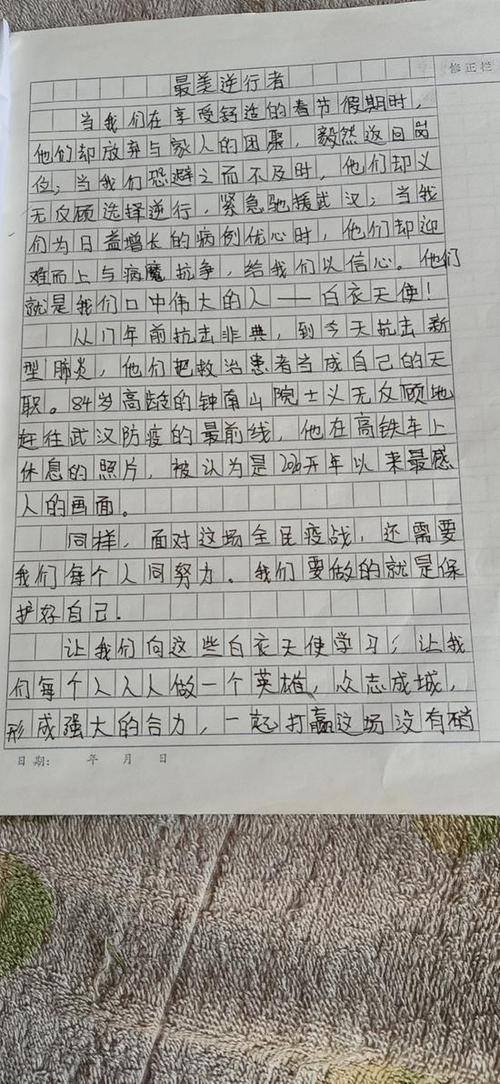 修正栏
最美逆行者
当我们在享受舒适的春节假期时，
他们却放弃与家人的团聚，毅然返回岗
位；当我们恐避之而不及时，他们却义
无反顾选择逆行，紧急驰援武汉；当我
们为日益增长的病例忧心时，他们却迎
难而上与病魔抗争，给我们以信心。他们
就是我们口中伟大的人——白衣天使！
从17年前抗击非典，到今天抗击新
型肺炎，他们把救治患者当成自己的天
职。84岁高龄的钟南山院士义无反顾地
赶往武汉防疫的最前线，他在高铁车上
休息的照片，被认为是2020开年以来最感
人的画面。
同样，面对这场全民疫战，还需要
我们每个人同努力。我们要做的就是保
护好自己.
让我们向这些白衣天使学习；让我
们每个人人人做一个英雄，众志成城，
形成强大的合力，一起打赢这场没有硝
日期： 年 月 日